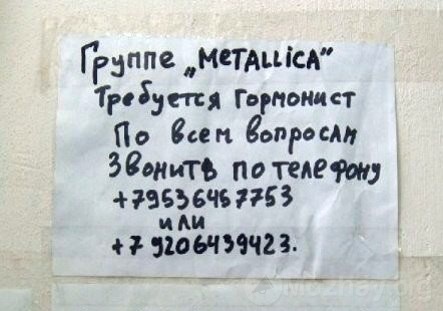 Группе „METALLiCA“
Требуется гормонист
По всем вопросам
Звонить по телефону
+79536457753
или
+7 9206439423.